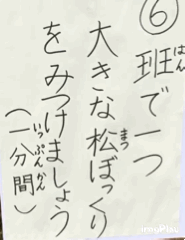 ⑥
班で一つ
はん
大きな松ぼっくり
まつ
をみつけましょう
(一分間)
いっぷんかん